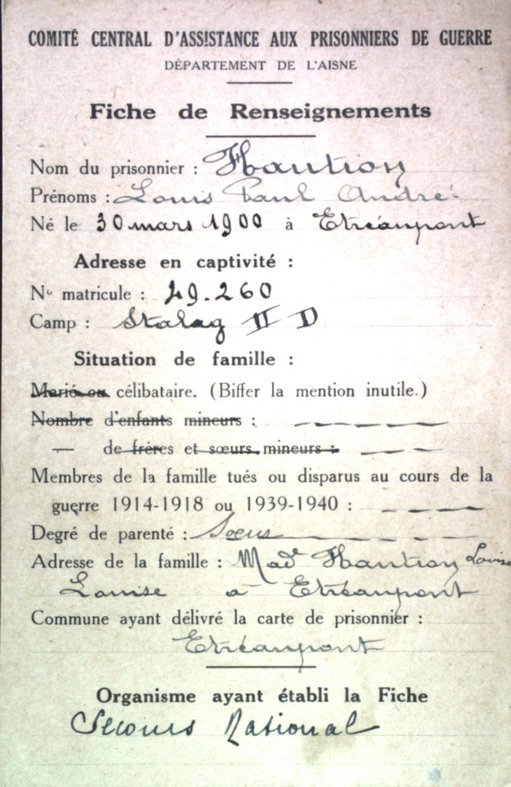 COMITÉ CENTRAL D'ASSISTANCE AUX PRISONNIERS DE GUERRE
DÉPARTEMENT DE L'AISNE
Fiche de Renseignements
Nom du prisonnier : Haution
Prénoms : Louis Paul André
Né le 30 mars 1900 à Etréaupont
Adresse en captivité :
N° matricule : 49.260
Camp : Stalag II D
Situation de famille :
Marié ou célibataire. (Biffer la mention inutile.)
Nombre d'enfants mineurs :
— de frères et sœurs mineurs :
Membres de la famille tués ou disparus au cours de la
guerre 1914-1918 ou 1939-1940 :
Degré de parenté : Soeur
Adresse de la famille : Mad Haution Louise
Louise à Etréaupont
Commune ayant délivré la carte de prisonnier :
Etréaupont
Organisme ayant établi la Fiche
Secours National